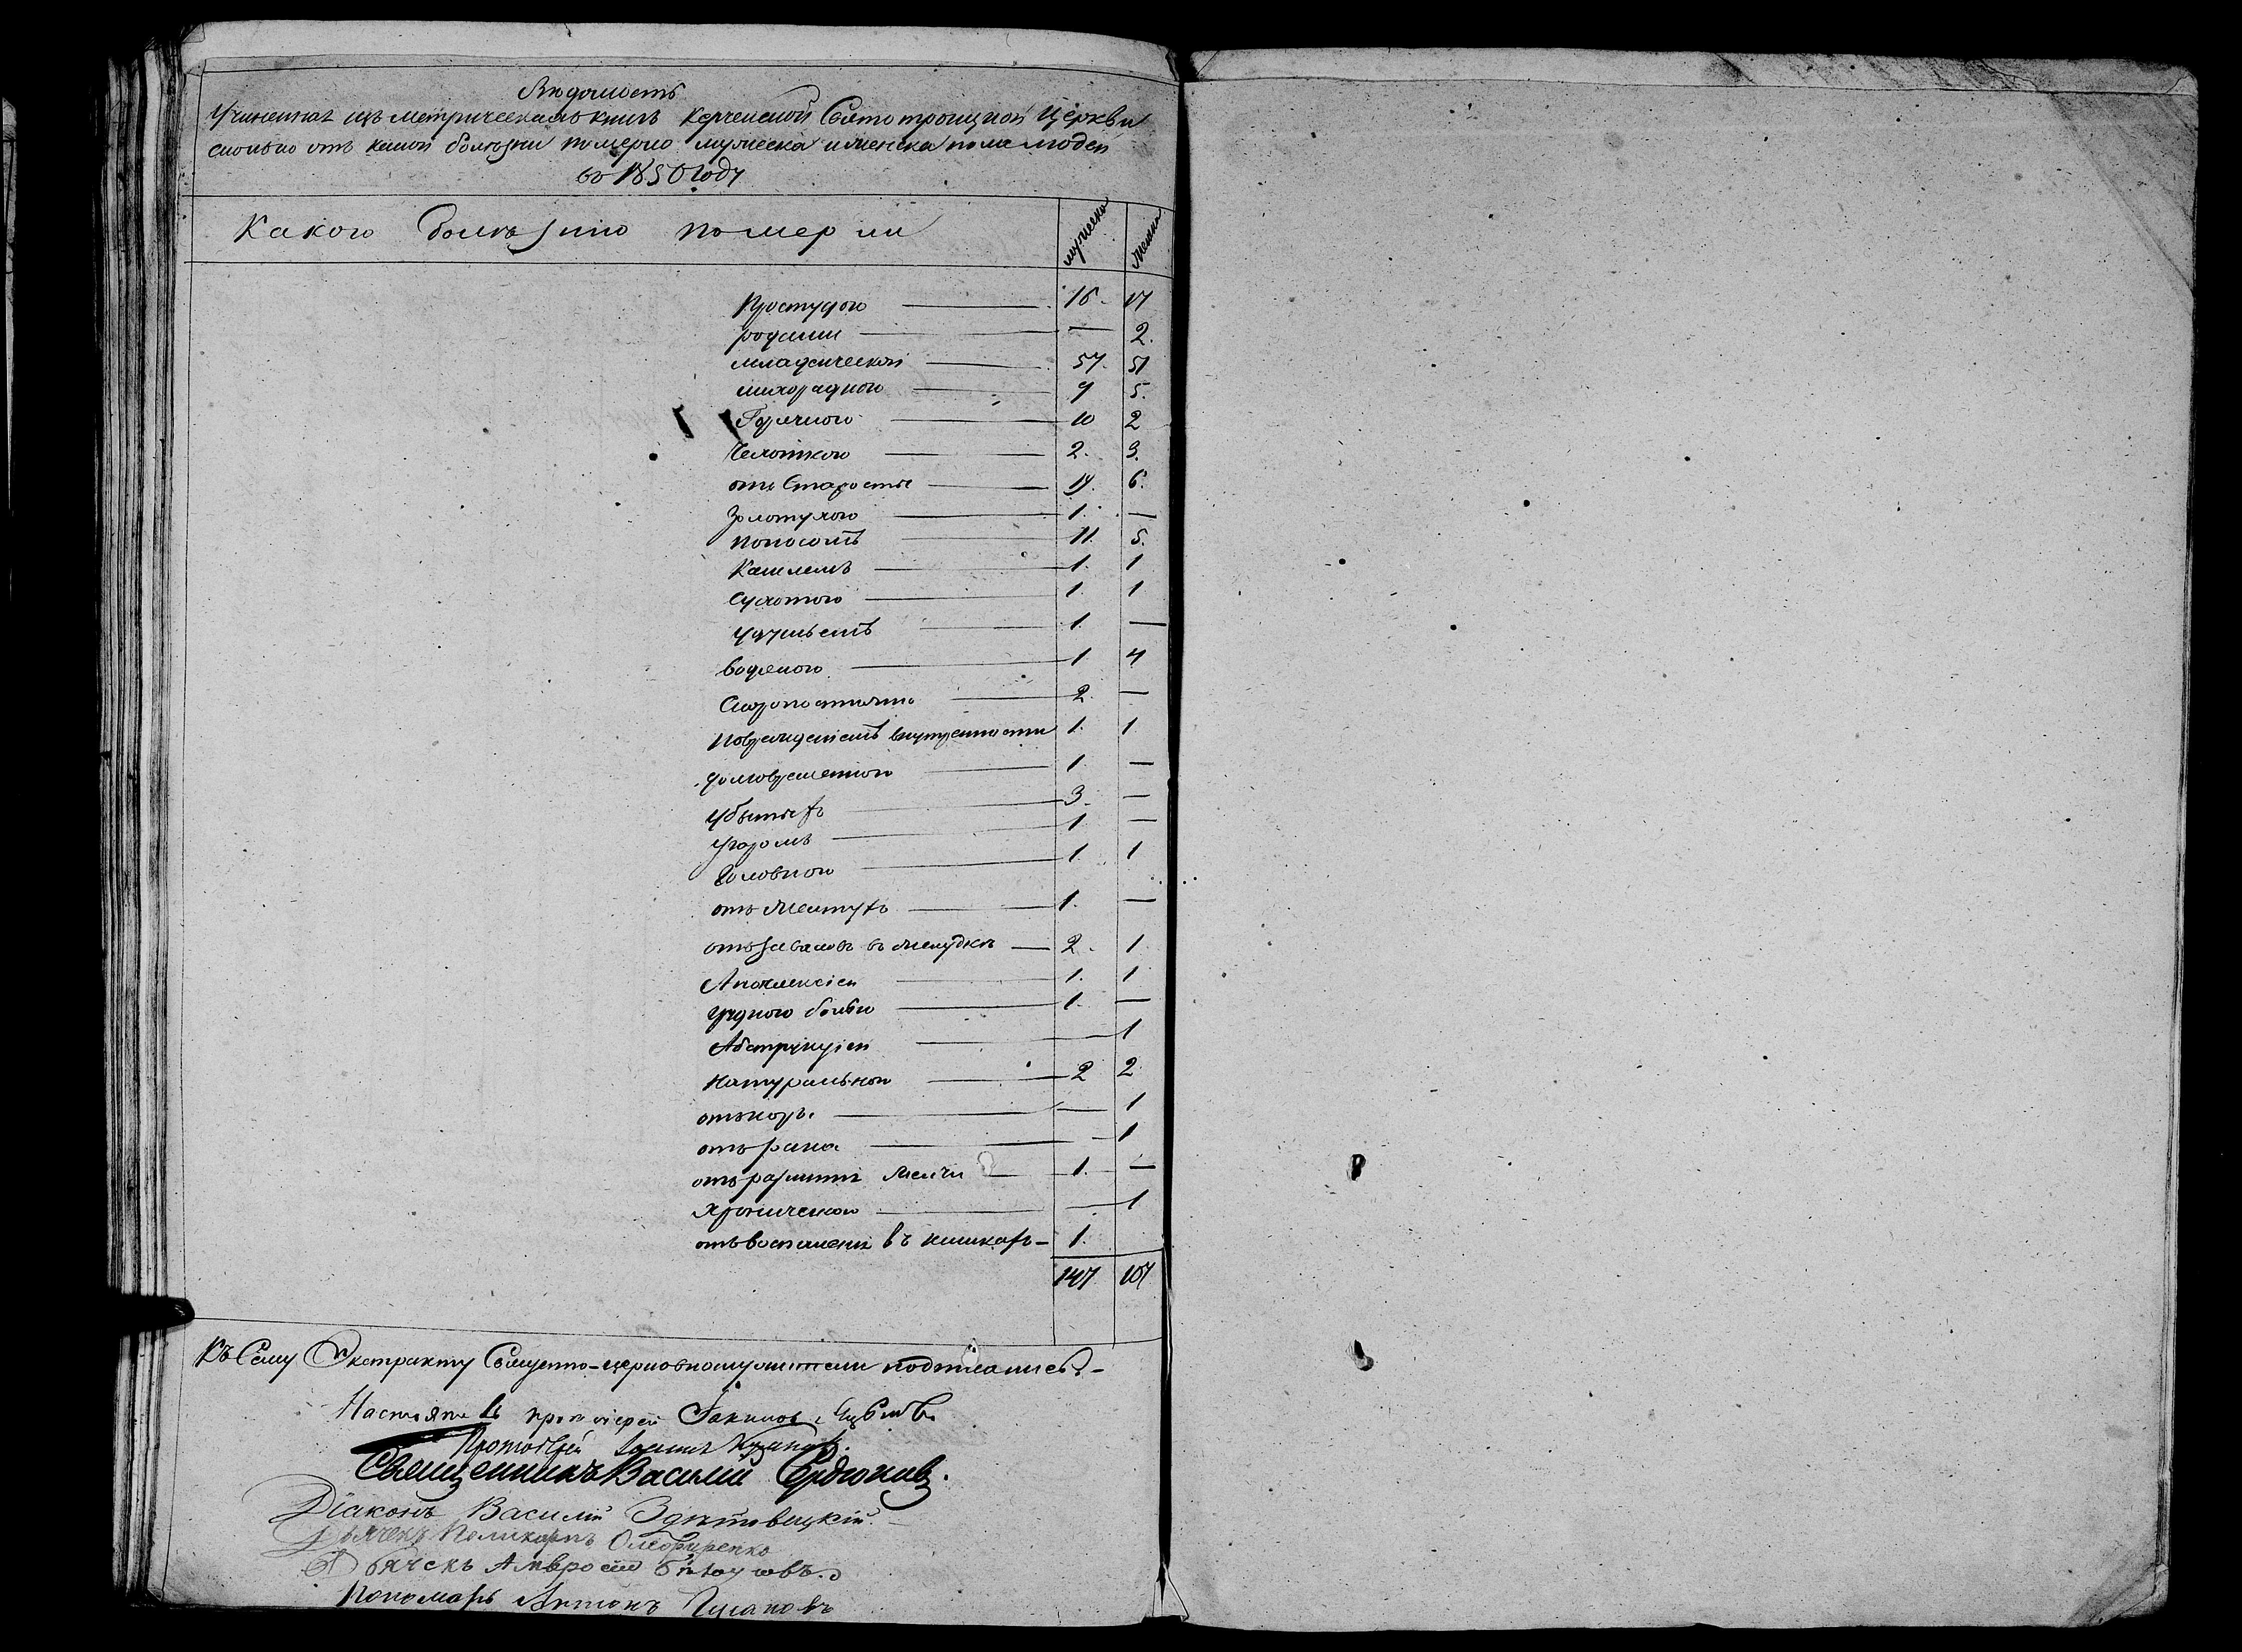 Вѣдомость
Учиненная изъ метрическихъ книгъ Керченской Свято троицкой Церкви
сколько отъ какой болѣзни померло мужеска и женска пола людей
въ 1850 году
Какою болѣзнію померли мужеска женска
Простудою 16. 17
родами — 2.
младенческой 57. 51
лихорадкою 9 5.
Горячкою 10 2
Чехоткою 2. 3.
отъ Старости 19. 6.
Золотухою 1. —
поносомъ 11. 5.
Кашлемъ 1. 1
Сухотою 1. 1
удушьемъ 1. —
водяною 1 4
Скоропостижно 2. —
Поврежденіемъ внутренности 1. 1
долговременною 1. —
убитыхъ 3. —
Угаромъ 1 —
Головною 1. 1
отъ 1. —
отъ заваловъ въ желудкѣ 2. 1
Апоплексіей 1. 1
грудною болью 1. —
Абструкціей 1
Натуральной 2 2
отъ коръ. — 1
отъ рака — 1
отъ разлитія желчи 1. —
Хроническою — 1
отъ воспаленія въ кишкахъ 1.
147. 107
Къ Сему Экстракту Священно-церковнослужители подписались
Настоятель протоіерей
Протоіерей Іоаннъ
Священникъ Василій Сердюковъ.
Діаконъ Василій
Дьячекъ Поликарпъ
Дьячекъ Амвросій
Пономарь Антонъ